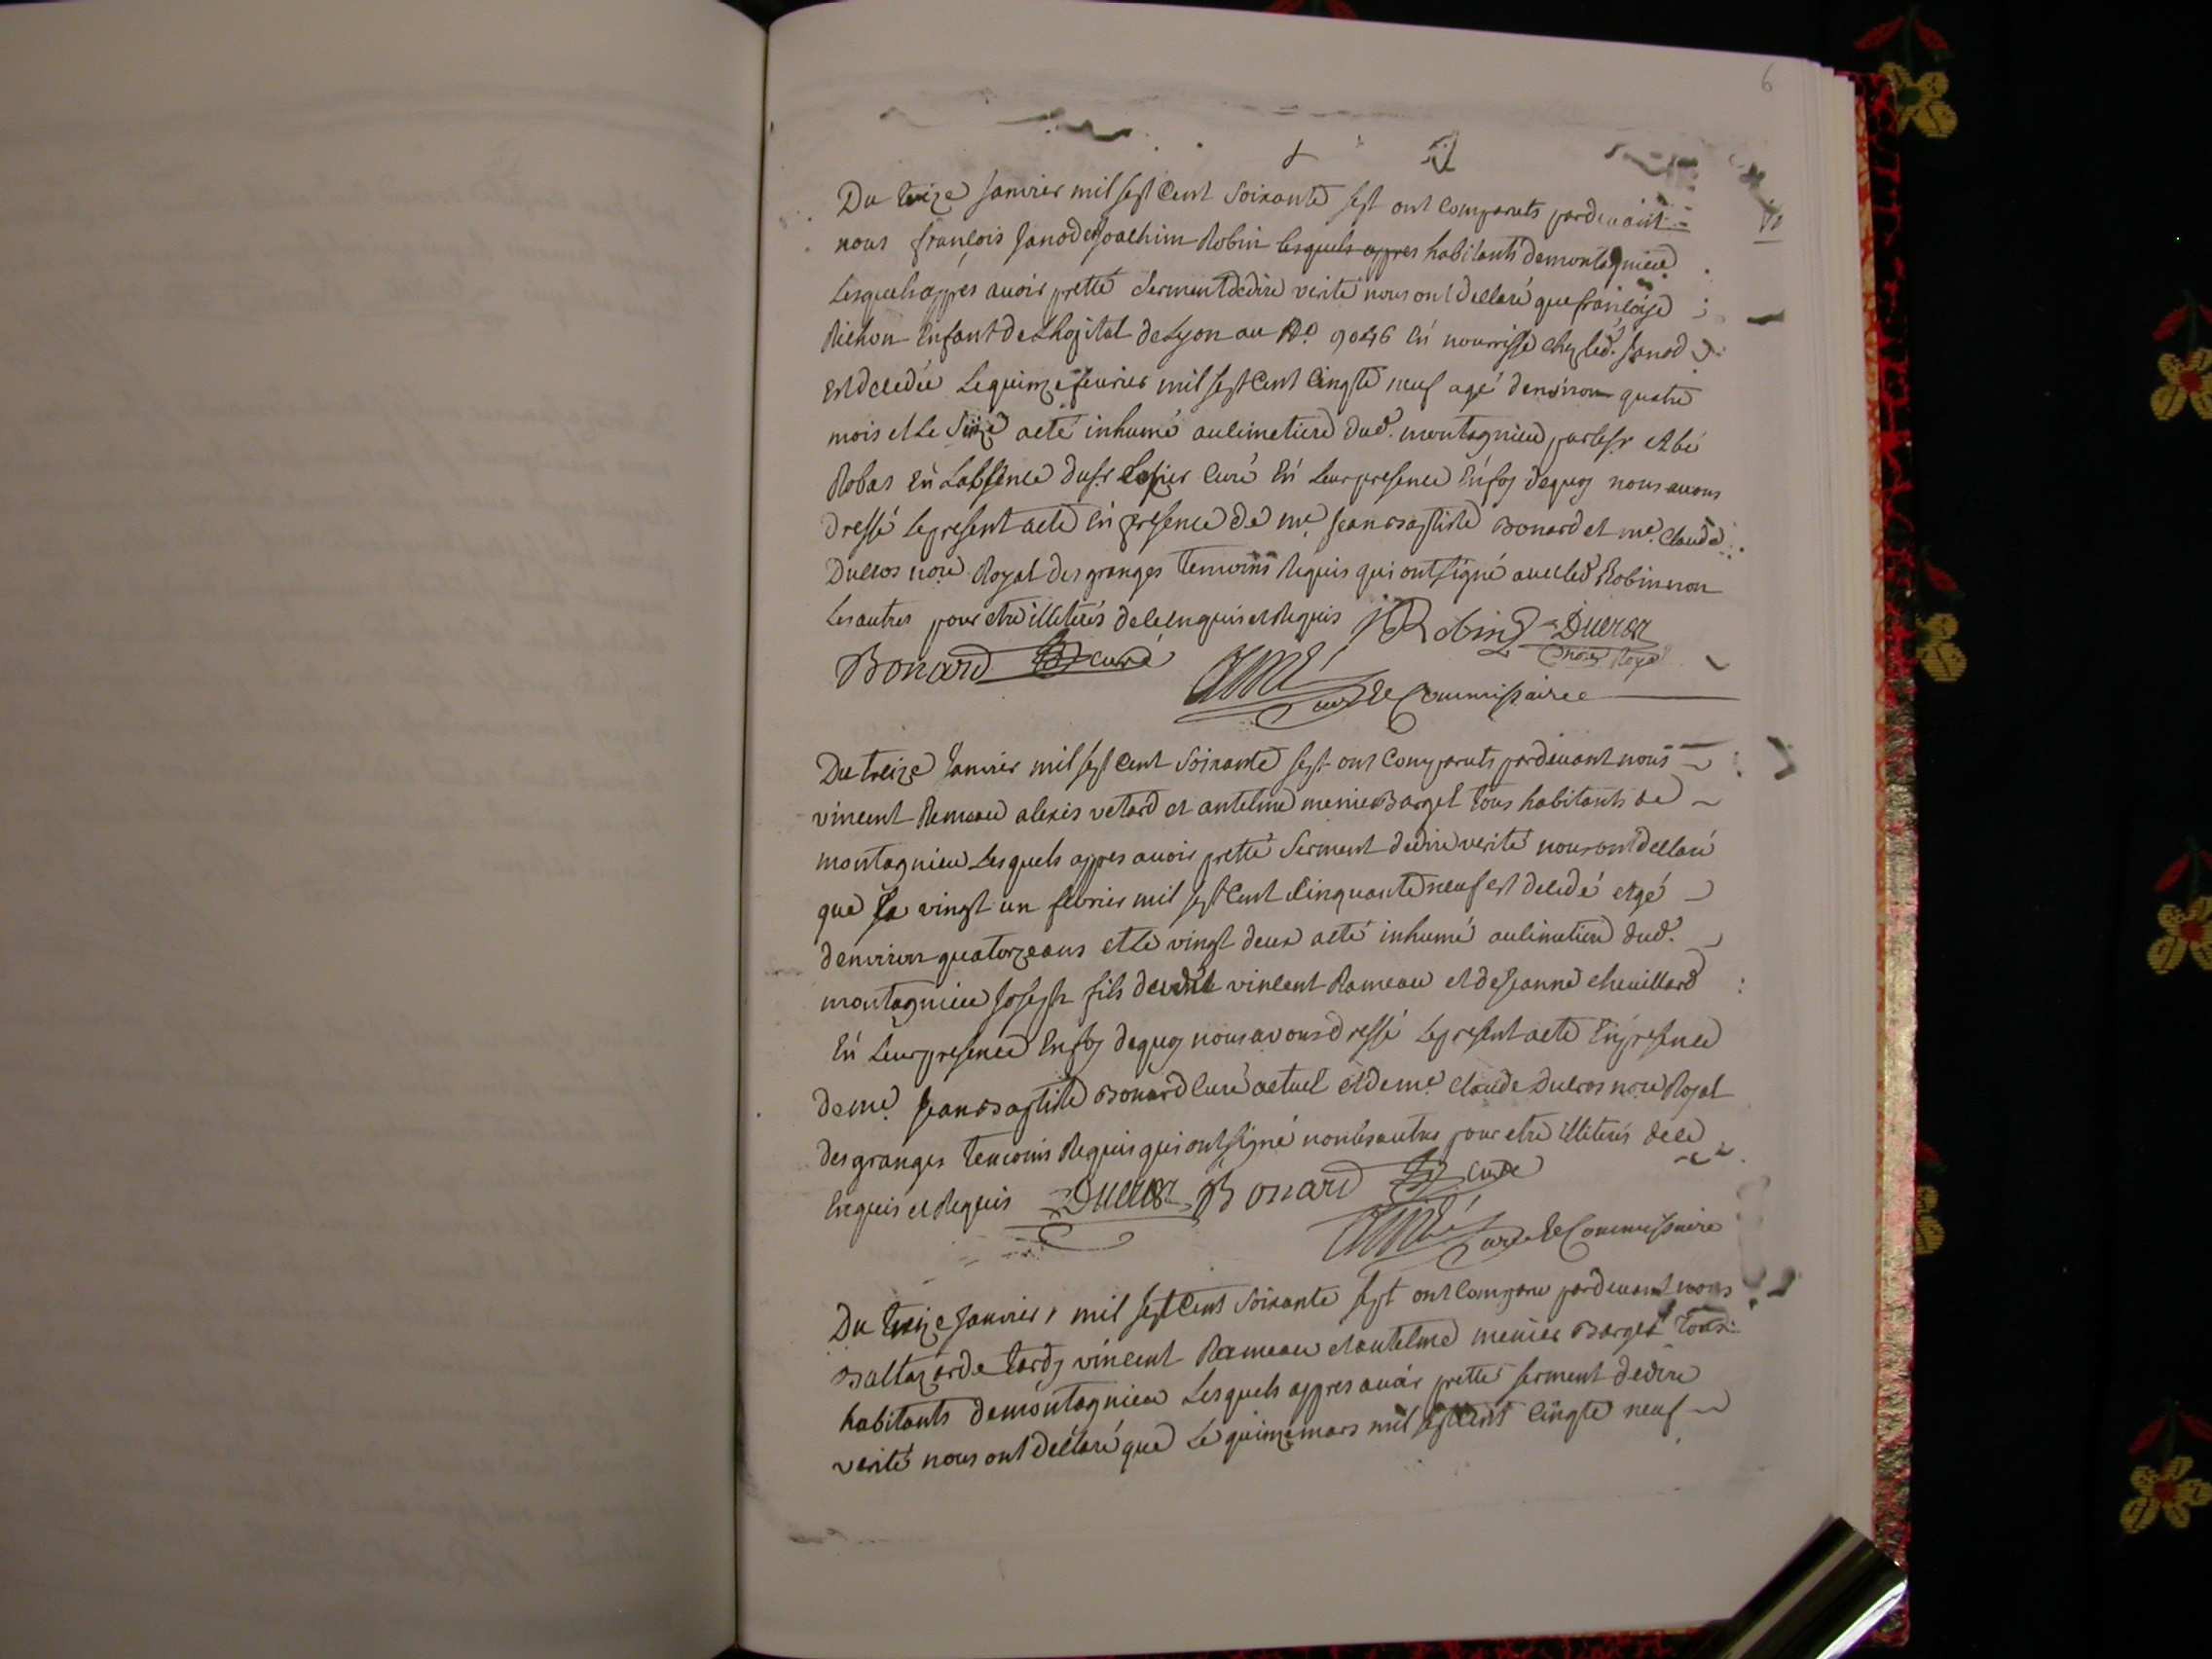 6
Du treize janvier mil sept cent soixante sept ont comparuts pardevant
nous françois janod et joachim Robin lesquels appres habitants demontagnieu
Lesquels appres avoir pretté serment dedire verité nous ont declaré que françoise
Richon Enfant de Lhopital de Lyon au No. 9046 En nourrisse chez led. janod
est decedée Lequinze fevrier mil sept cent cinqte neuf agé denviron quatre
mois et Le seize a eté inhumé aucimetiere dud. montagnieu par le sr Abé
Robas En Labsence du sr curé En Leur presence En foy dequoy nous avons
dressé Lepresent acte En presence de me. jean Baptiste Bonard et me. Claude
Ducros nore. Royal des granges temoins Requis qui ont signé avec led Robin non
Les autres pour etre illiterés de ce enquis et Requis JRobin Ducros
nore Royal
Bonard curé
AMÉ
curé & Commissaire
Du treize janvier mil sept cent soixante sept ont comparuts pardevant nous
vincent Rameau alexis vetard et antelme menier Barget tous habitants de
montagnieu Lesquels appres avoir pretté serment dedire verité nous ont declaré
que Le vingt un febvrier mil sept cent cinquante neuf est decedé agé
denviron quatorze ans et Le vingt deux a eté inhumé aucimetiere dud.
montagnieu joseph fils de vincent Rameau et de jeanne chevillard
En Leur presence En foy dequoy nous avons dressé Lepresent acte En presence
de me. jean Baptiste Bonard curé actuel et de me. Claude Ducros nore Royal
des granges temoins Requis qui ont signé non les autres pour etre illiterés de ce
Enquis et Requis Ducros Bonard curé
AMÉ curé & Commissaire
Du treize janvier mil sept cent soixante sept ont comparu pardevant nous
Baltazarde tardy vincent Rameau et antelme menier Barget tous
habitants demontagnieu Lesquels appres avoir pretté serment dedire
verité nous ont declaré que Le quinze mars mil sept cent cinqte neuf